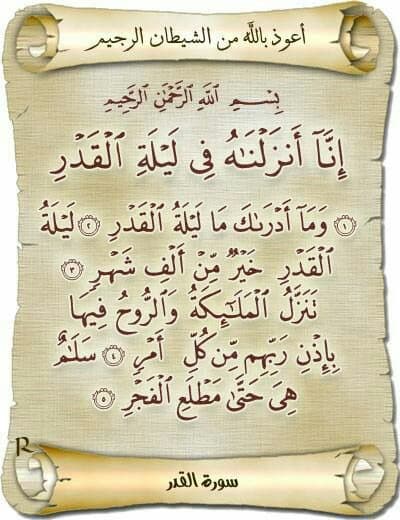 أعوذ بالله من الشيطان الرجيم
بِسْمِ ٱللَّهِ ٱلرَّحْمَٰنِ ٱلرَّحِيمِ
إِنَّآ أَنزَلْنَٰهُ فِى لَيْلَةِ ٱلْقَدْرِ
١ وَمَآ أَدْرَىٰكَ مَا لَيْلَةُ ٱلْقَدْرِ ٢ لَيْلَةُ
ٱلْقَدْرِ خَيْرٌ مِّنْ أَلْفِ شَهْرٍ ٣
تَنَزَّلُ ٱلْمَلَٰٓئِكَةُ وَٱلرُّوحُ فِيهَا
بِإِذْنِ رَبِّهِم مِّن كُلِّ أَمْرٍ ٤ سَلَٰمٌ
هِىَ حَتَّىٰ مَطْلَعِ ٱلْفَجْرِ ٥
R
سورة القدر